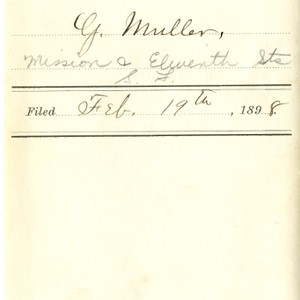 G. Muller,
Mission & Eleventh Sts
S. F.
Filed Feb. 19th, 1898.